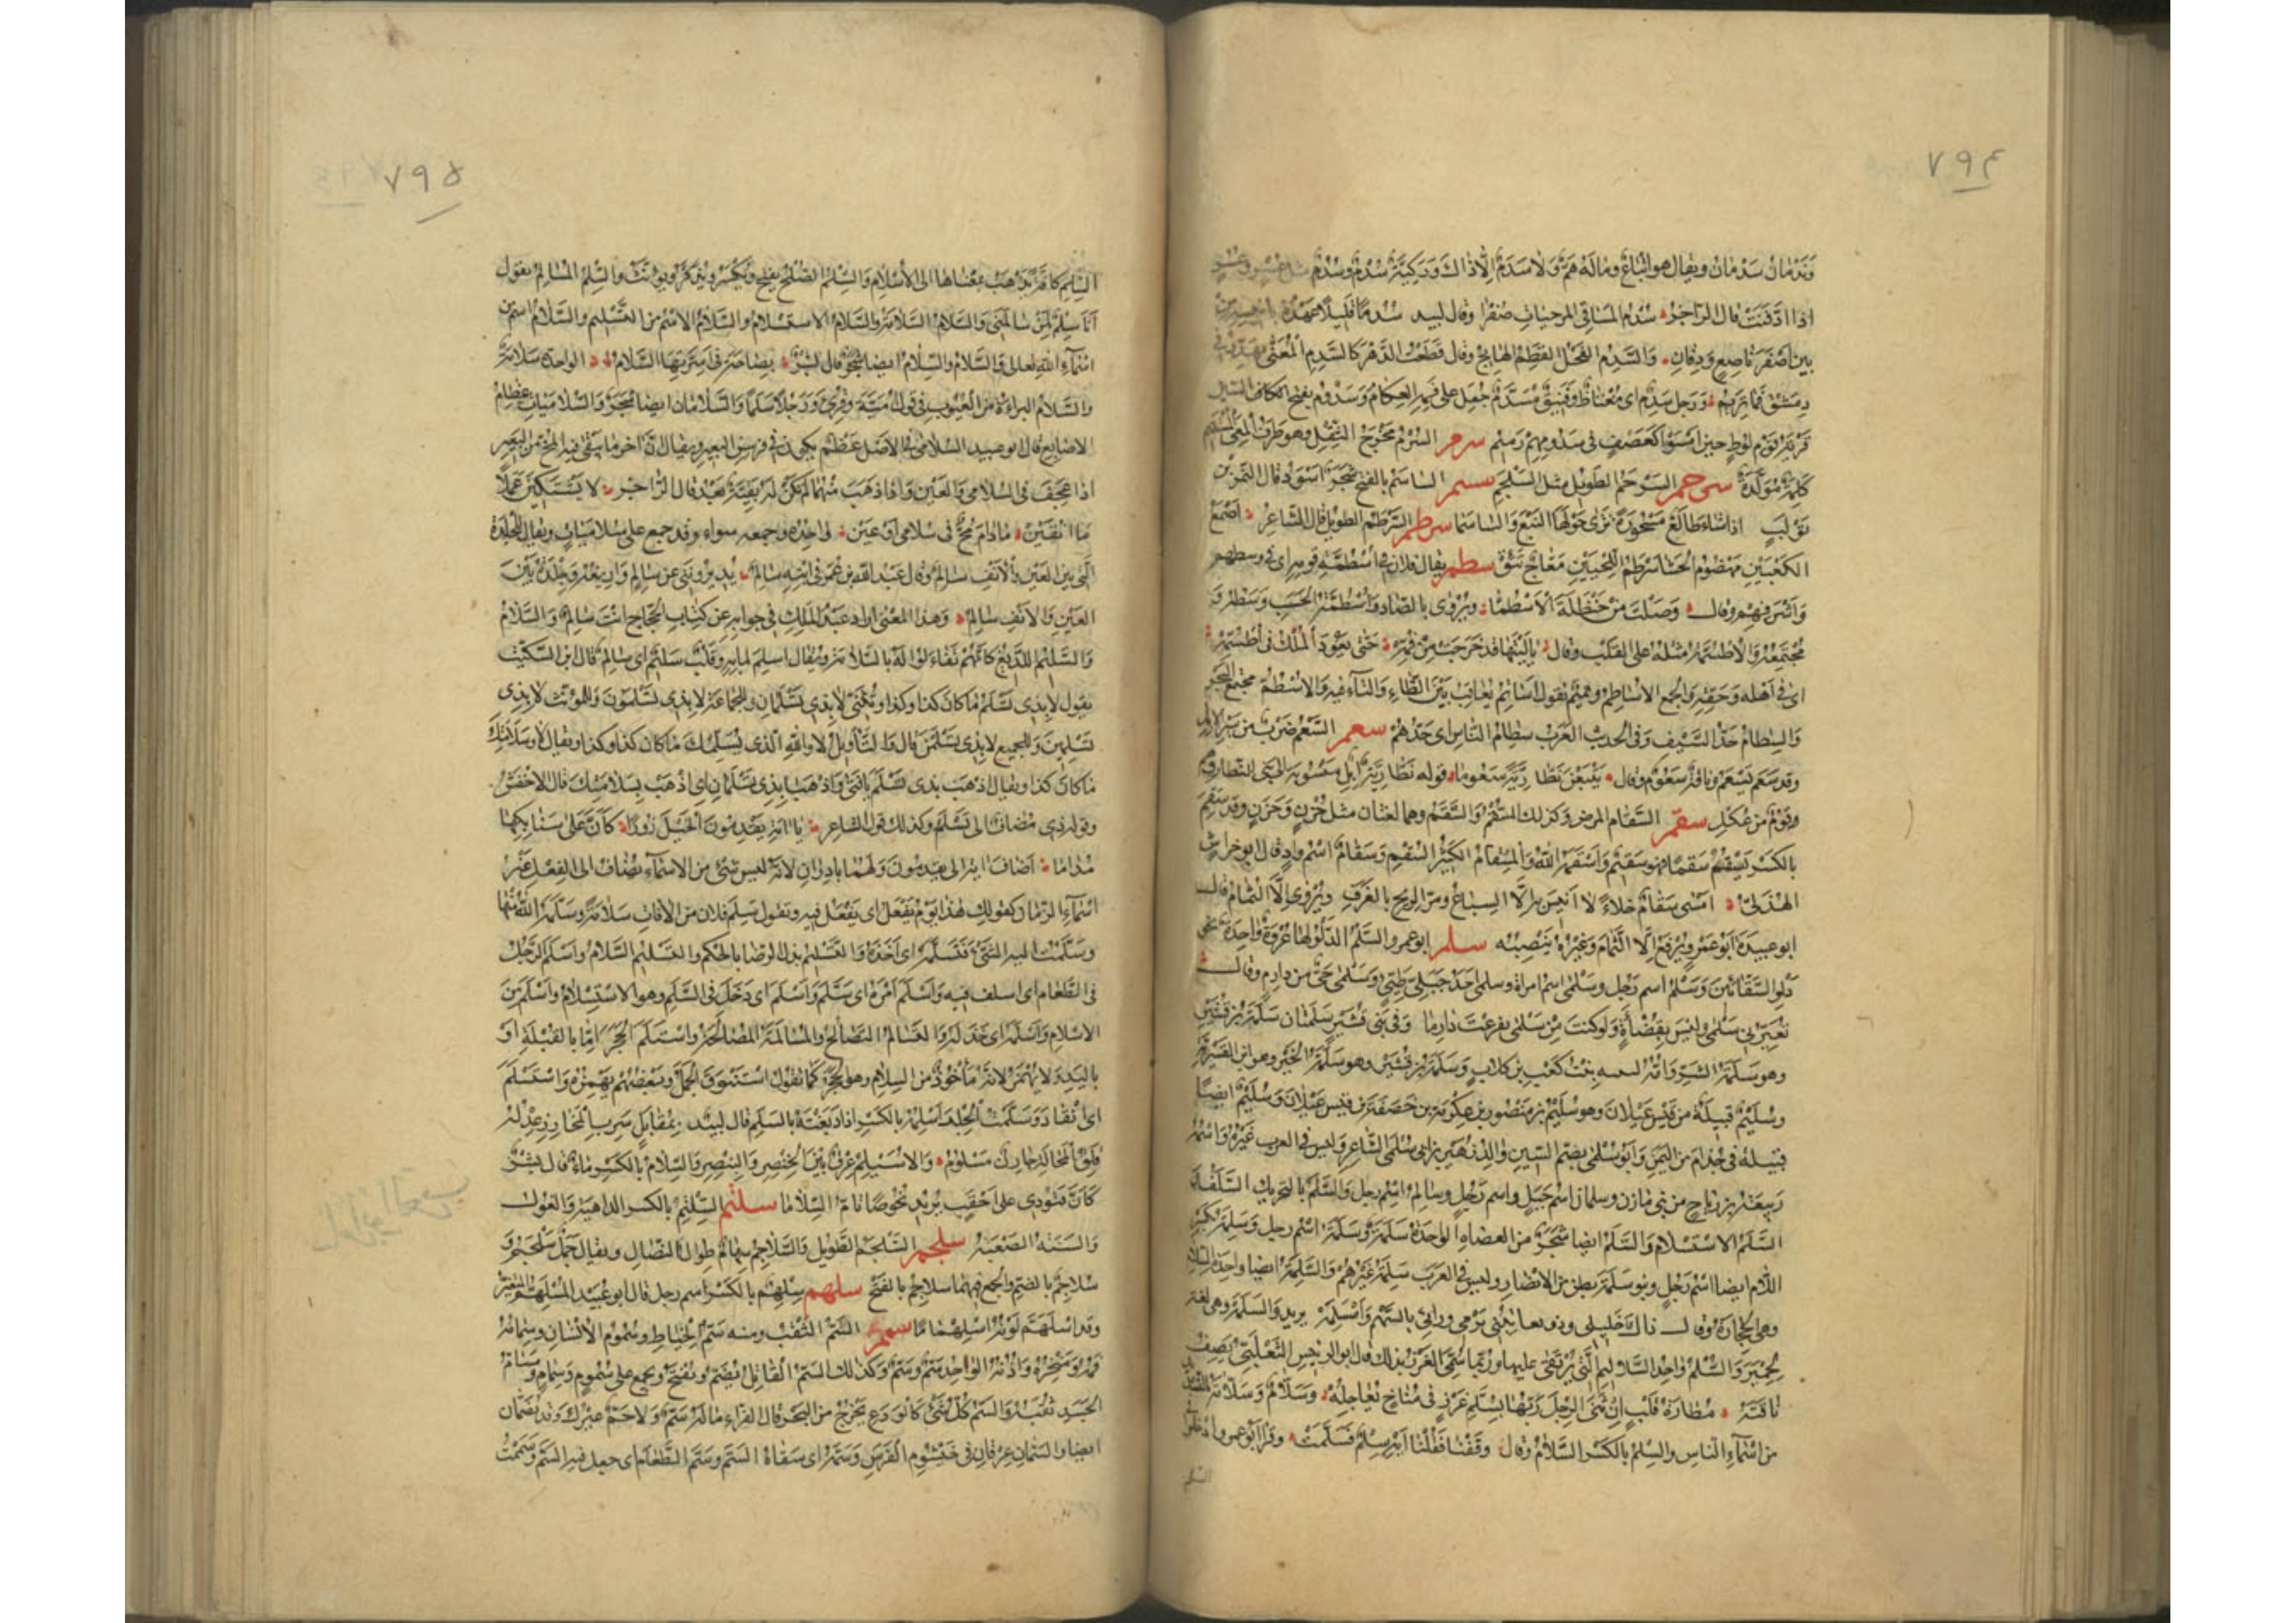 ٧٩٤
وَنَدْمَانُ سَدْمَانُ ويقال هو اتباعٌ وماله هَمٌّ وَلا سَدَمٌ إلّا ذاك وَرَكِيَّةٌ سُدْمٌ وَسُدُمٌ مثل عُسْرٍ وعُسُرٍ
اذا ادّفنت قال الراجز سُدْمَ المساقى المرخيات صُفْرا وقال لبيد سُدْمًا قليلًا عهده بانيسه من
بين اصفر ناصع ودفان والسَّدِم الفحل القطم الهايج وقال قطعت الدهر كالسدم المعنّى تهدّر فى
دمشق فما تريم ورجل سدم اى مغتاظ وفنيق مُسَدَّم جعل على فمه العكام وسدوم بفتح السين
قرية قوم لوط حين امسوا كعصف فى سدومهم رميم سرم السُّرم مخرج الثفل وهو طرف المعى المستقيم
كلمة مولّدة سرجم السَّرجم الطويل مثل السَّلجم سسم الساسم بالفتح شجر اسود قال النمر بن
تولب اذا شاء طالع مسجورة ترى حولها النبع والساسما سرطم السرطم الطويل قال الشاعر اصمع
الكعبين مهضوم الحشا سرطم اللحيين معّاج تئق سطم يقال فلان فى اسطمّة قومه اى فى وسطهم
واشرفهم وقال وصلت من حنظلة الاسطمّا ويروى بالصاد واسطمة الحسب وسطه و
مجتمعه والاطسمة مثله على القلب وقال يا ليتها قد خرجت من فمه حتى يعود الملك فى اطسمه
اى فى اهله وحقه والجمع الاساطم وتميم تقول اساتم تعاقب بين الطاء والتاء فيه والاسطم مجتمع البحر
والسطام حدّ السيف وفى الحديث العرب سطام الناس اى حدهم سعم السَّعم ضرب من سير الابل
وقد سعم يسعم وناقة سعوم وقال يتبعن نظّاريّة سعوما قوله نظارية ابل منسوبة الى بنى النظار
وقوم من عكل سقم السقام المرض وكذلك السُّقم والسَّقم وهما لغتان مثل حُزن وحَزَن وقد سقم
بالكسر يسقم سقما فهو سقيم واسقمه الله والمسقام الكثير السقم وسقام اسم واد قال ابو خراش
الهذلى امسى سقام خلاءً لا انيس به الا السباع ومرّ الريح بالغرف ويروى الّا الثمام قال
ابو عبيدة ابو عمرو يرفع الا الثمام وغيره ينصبه سلم ابو عمرو السَّلم الدلو لها عروة واحدة نحو
دلو السقائين وسلم اسم رجل وسلمى اسم امراة وسلمى احد جبلى طيّئ وسلمى حىّ من دارم وقال
تعيرنى سلمى وليس بقضأة ولو كنت من سلمى تفرعت دارما وفى بنى قشير سلمتان سلمة بن قشير
وهو سلمة الشرّ وامّه لبينى بنت كعب بن كلاب وسلمة بن قشير وهو سلمة الخير وهو ابن القشيرية
وسُليم قبيلة من قيس عيلان وهو سليم بن منصور بن عكرمة بن خصفة بن قيس عيلان وسليم ايضا
قبيلة فى جذام من اليمن وابو سُلمى بضم السين والد زهير بن ابى سلمى الشاعر وليس فى العرب غيره واسمه
ربيعة بن رباح من بنى مازن وسلمان اسم جبل واسم رجل وسالم اسم رجل والسَّلم بالتحريك السلف
السلم الاستسلام والسلم ايضا شجر من العضاه الواحدة سلمة وسلمة اسم رجل وسلمة بكسر
اللام ايضا اسم رجل وبنو سلمة بطن من الانصار وليس فى العرب سلمة غيرهم والسلمة ايضا واحدة السلام
وهى الحجارة وقال ذاك خليلى وذو يعاتبنى يرمى ورائى بالسهم وامسلمه يريد والسلمة وهى لغة
لحمير والسُّلّم واحد السلاليم التى يرتقى عليها وربما سمى الغرز بذلك قال ابو الربيس التغلبى يصف
ناقته مطارة قلب ان ثنى الرجل ربّها بسلّم غرز فى مناخ تعاجله وسلّام وسلامة
من اسماء الناس والسِّلم بالكسر السلام وقال وقفنا فقلنا ايه سلم فسلّمت وقرا ابو عمرو ادخلوا فى
السلم
٧٩٥
السِّلم كافة يذهب بمعناها الى الاسلام والسلم الصلح يفتح ويكسر ويذكر ويونث والسلم المسالم يقول
انا سلم لمن سالمنى والسلام السلامة والسلام الاستسلام والسلام الاسم من التسليم والسلام اسم من
اسماء الله تعالى والسلام والسِّلام ايضا شجر قال بشر بصاحة فى اسرّتها السلام الواحدة سلامة
والسلام البراءة من العيوب فى قول امية وقرئ ورجلا سلما والسلامان ايضا شجر والسلاميات عظام
الاصابع قال ابو عبيد السلامى فى الاصل عظم يكون فى فرسن البعير ويقال ان اخر ما يبقى فيه المخ من البعير
اذا عجف فى السلامى والعين واذا ذهب منهما لم تكن له بقية بعد قال الراجز لا يشتكين عملًا
ما انقين ما دام مخ فى سلامى او عين واحده وجمعه سواء وقد جمع على سلاميات ويقال للجلدة
التى بين العين والانف سالم وقال عبد الله بن عمر فى ابنه سالم يديروننى عن سالم واريغه وجلدة بين
العين والانف سالم وهذا المعنى اراد عبد الملك فى جوابه عن كتاب الحجاج انت سالم والسلام
والسليم اللديغ كانهم تفاءلوا له بالسلامة ويقال اسلم لما به وقلب سليم اى سالم قال ابن السكيت
تقول لا بذى تسلم ما كان كذا وكذا وتثنى لا بذى تسلمان وللجماعة لا بذى تسلمون وللمونث لا بذى
تسلمين وللجميع لا بذى تسلمن قال والتأويل لا والله الذى يسلمك ما كان كذا وكذا ويقال لا وسلامتك
ما كان كذا ويقال اذهب بذى تسلم يا فتى واذهبا بذى تسلمان اى اذهب بسلامتك قال الاخفش
وقوله ذى مضاف الى تسلم وكذلك قول الشاعر باية يقدمون الخيل زورا كأن على سنابكها
مداما اضاف اية الى يقدمون ولهما نادران لانه ليس شئ من الاسماء يضاف الى الفعل غير
اسماء الزمان كقولك هذا يوم تفعل اى يفعل فيه وتقول سلم فلان من الافات سلامة وسلمه الله منها
وسلمت اليه الشئ فتسلمه اى اخذه والتسليم بذل الرضا بالحكم والتسليم السلام واسلم الرجل
فى الطعام اى اسلف فيه واسلم امره اى سلم واسلم اى دخل فى السلم وهو الاستسلام واسلم من
الاسلام واسلمه اى خذله والتسالم التصالح والمسالمة المصالحة واستلم الحجر امّا بالقبلة او
باليد ولا يهمز لانه ماخوذ من السلام وهو الحجر كما تقول استنوق الجمل وبعضهم يهمزه واستسلم
اى انقاد وسلمت الجلد اسلمه بالكسر اذا دبغته بالسلم قال لبيد بمقابل سرب المخارز عدله
قلق المحالة جارن مسلوم والاسيلم عرق بين الخنصر والبنصر والسلام بالكسر ماء قال بشر
كأن قتودى على احقب يريد نحوصا تام السلاما سلتم السِّلتم بالكسر الداهية والغول
والسنة الصعبة سلجم السَّلجم الطويل والسلاجم سهام طوال النصال ويقال جمل سلجم و
سلاجم بالضم والجمع فيهما سلاجم بالفتح سلهم سِلهم بالكسر اسم رجل قال ابو عبيد المسلهم المتغير
وقد اسلهمّ لونه اسلهماما سمم السمّ الثقب ومنه سمّ الخياط وسموم الانسان وسمامه
فمه ومنخره واذنه الواحد سَمّ وسُمّ وكذلك السم القاتل يضم ويفتح ويجمع على سموم وسمام ومسامّ
الجسد ثقبه والسم كل شئ كالودع يخرج من البحر قال الفراء ما له سمّ ولا حمّ غيرك وقد يضمان
ايضا والسمان عرقان فى خيشوم الفرس وسمّه اى سقاه السم وسمّ الطعام اى جعل فيه السم وسممت